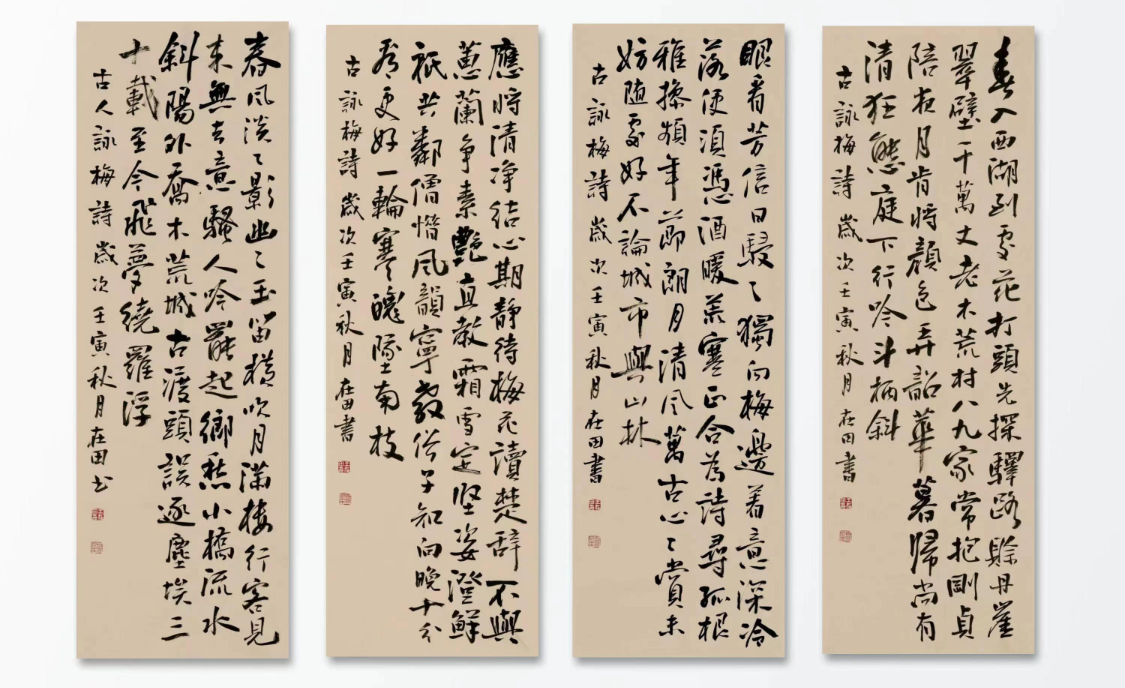 春入西湖到處花打頭先探驛路賒丹崖
翠壁千萬丈老木荒村八九家常抱剛貞
陪夜月肯將顏色弄韶華暮歸尚有
清狂態庭下行吟斗柄斜
古詠梅詩歲次壬寅秋月在田書
眼看芳信日駸〻獨向梅邊着意深冷
落便須憑酒暖荒寒正合為詩尋孤根
雅操頻年節朗月清風萬古心〻賞未
妨随處好不論城市與山林
古詠梅詩歲次壬寅秋月在田書
應將清淨結心期靜待梅花讀楚辭不與
蕙蘭爭素艷直教霜雪定堅姿澄鮮
祇共鄰僧惜風韻寧教俗子知向晚十分
看更好一輪寒魄墜南枝
古詠梅詩歲次壬寅秋月在田書
春風淡〻影幽〻玉笛橫吹月滿樓行客見
來無去意騷人吟罷起鄉愁小橋流水
斜陽外喬木荒城古渡頭誤逐塵埃三
十載至今飛夢繞羅浮
古人詠梅詩歲次壬寅秋月在田书